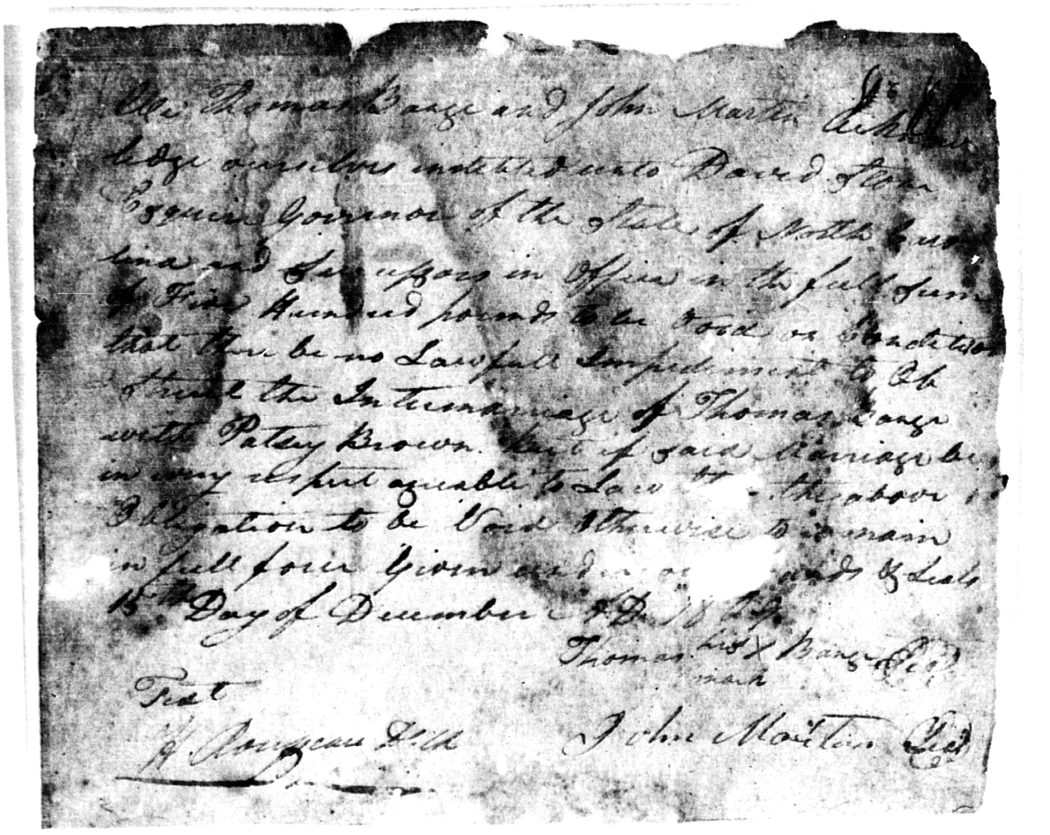 We Thomas Bange and John Martin Acknow
ledge ourselves indebted unto David Stone
Esquire Governor of the State of North Caro
lina and Sucessors in Office in the full sum
of Five Hundred pounds to be Void on Condition
that there be no Lawfull Impediment to Ob
struct the Intermarriage of Thomas Bange
with Patsey Brown. But if said Marriage be
in any respect agreable to Law the above
Obligation to be Void Otherwise to remain
in full force Given under our hands & Seals
15th Day of December AD 1809
Thomas his X mark Bange Seal
Test
John Martin Seal